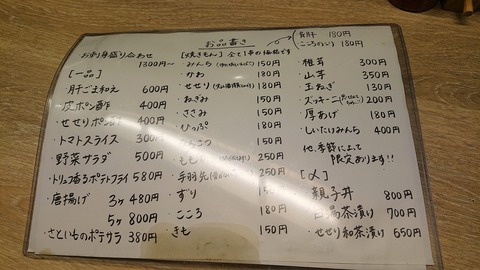 お品書き
お刺身盛り合わせ
1300円〜
[一品]
・肝ごま和え 600円
・皮ポン酢 400円
・せせりポン酢 400円
・トマトスライス 300円
・野菜サラダ 500円
・トリュフ香るポテトフライ 580円
・唐揚げ 3ヶ 480円
5ヶ 800円
・さといものポテサラ 380円
[焼きもん] 全て1本の価格です
・みんち 150円
・かわ 180円
・せせり 180円
・ねぎみ 150円
・ささみ 150円
・ひっぷ 180円
150円
・もも 250円
・手羽先 250円
・ずり 150円
・こころ 180円
・きも 150円
180円
こころのこり 180円
・椎茸 300円
・山芋 350円
・玉ねぎ 130円
・ズッキーニ 200円
・厚あげ 180円
・しいたけみんち 400円
他、季節によって
限定あります!!
[〆]
・親子丼 800円
・白湯茶漬け 700円
・せせり和茶漬け 650円